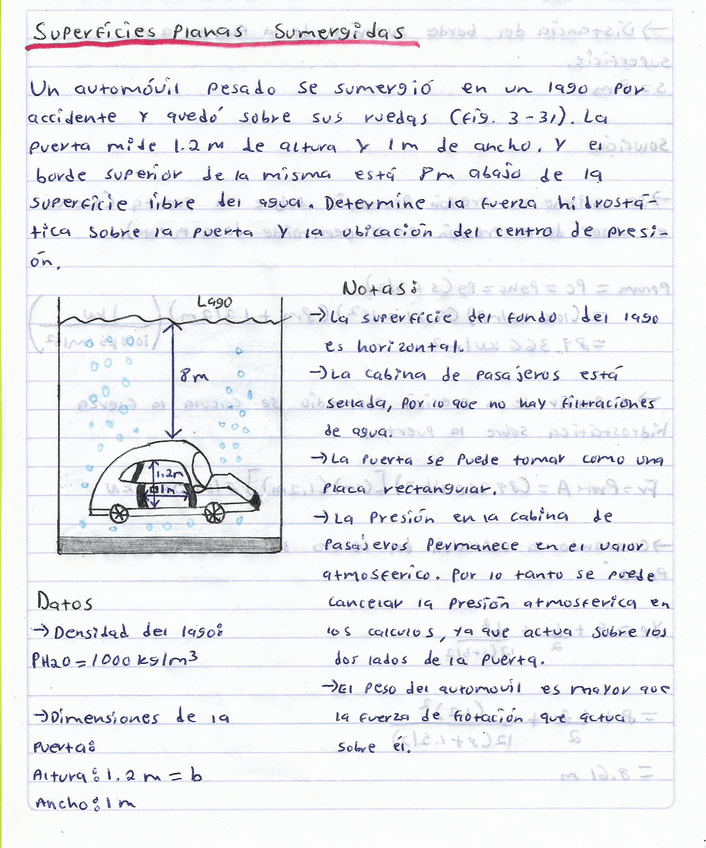 Superficies Planas Sumergidas
Un automóvil pesado se sumergió en un lago por
accidente y quedó sobre sus ruedas (fig. 3-31). La
puerta mide 1.2 m de altura y 1m de ancho, y el
borde superior de la misma está 8m abajo de la
superficie libre del agua. Determine la fuerza hidrostá-
tica sobre la puerta y la ubicación del centro de presi-
ón.
Lago
8m
1.2m
1m
Notas:
→La superficie del fondo del lago
es horizontal.
→La cabina de pasajeros está
sellada, por lo que no hay filtraciones
de agua.
→La puerta se puede tomar como una
placa rectangular.
→La presión en la cabina de
pasajeros permanece en el valor
atmosferico. Por lo tanto se puede
cancelar la presión atmosferica en
los calculos, ya que actua sobre los
dos lados de la puerta.
→El peso del automovil es mayor que
la fuerza de flotación que actua
sobre él.
Datos
→Densidad del lago:
PH2O=1000 kg/m³
→Dimensiones de la
puerta:
Altura: 1.2 m = b
Ancho: 1m